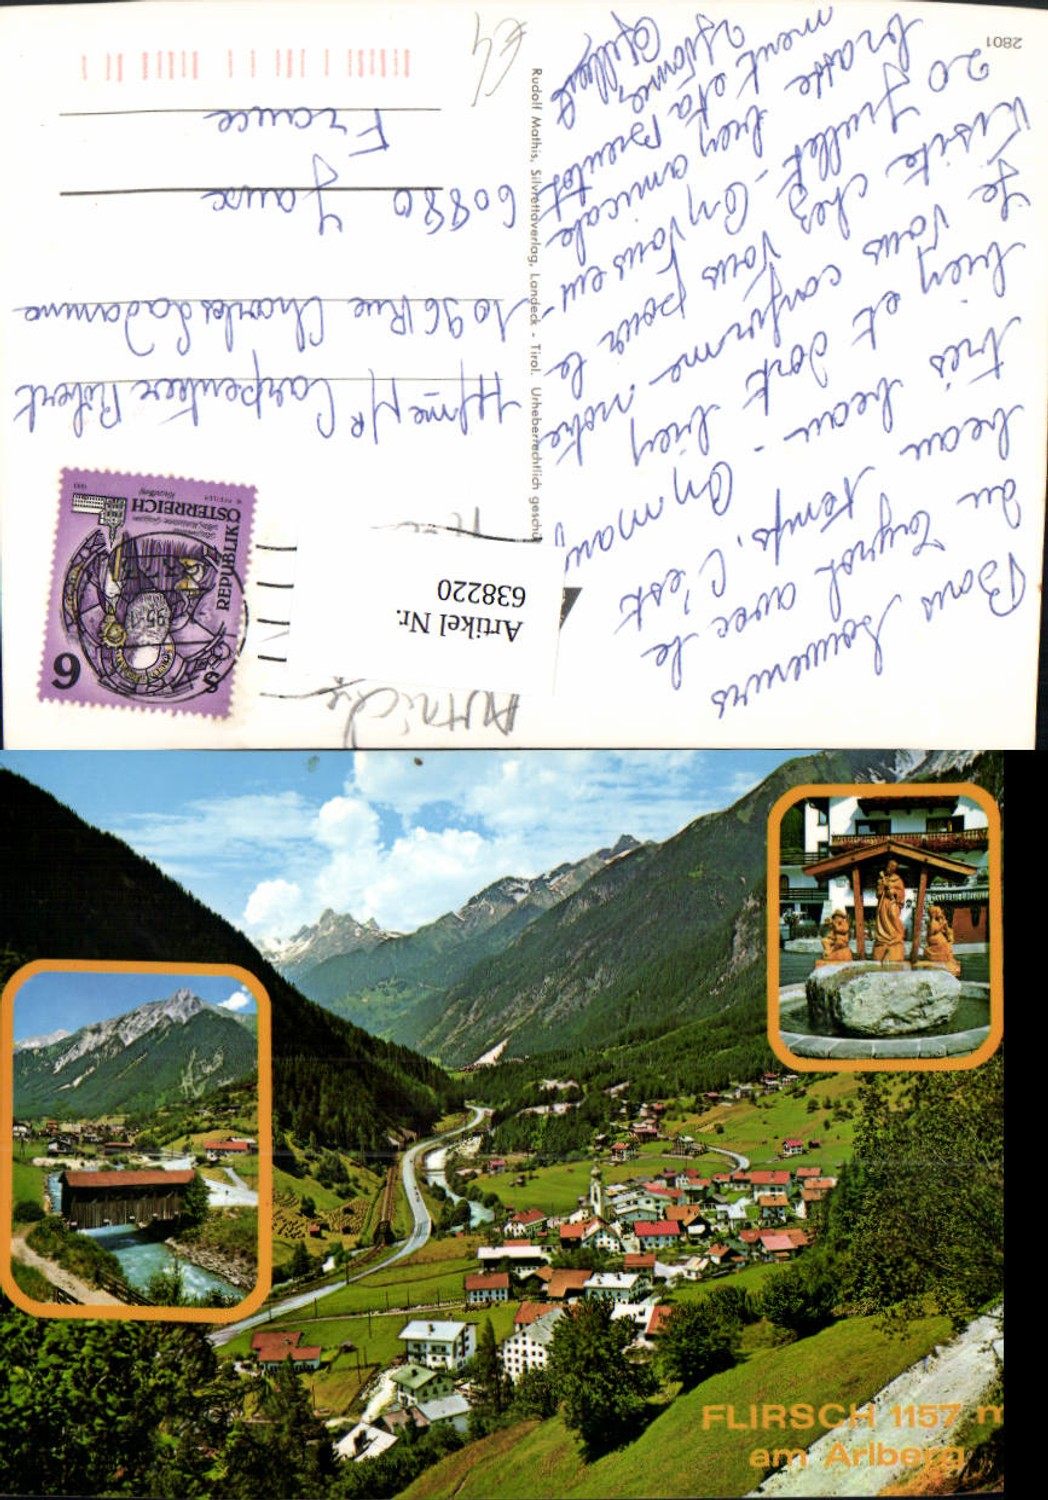 2801
Bons souvenirs
du Tyrol avec le
beau temps. C'est
très beau - On mange
bien et dort bien
Je vous confirme notre
visite chez vous pour le
20 Juillet - On vous em-
brasse bien amicale
ment et à bientôt
Rudolf Mathis, Silvrettaverlag, Landeck - Tirol. Urheberrechtlich geschü
Artikel Nr.
638220
REPUBLIK
ÖSTERREICH
S
6
Mme Mr Carpentier Robert
1096 Rue Charles Ladame
60880 Jaux
France
FLIRSCH 1157 m
am Arlberg